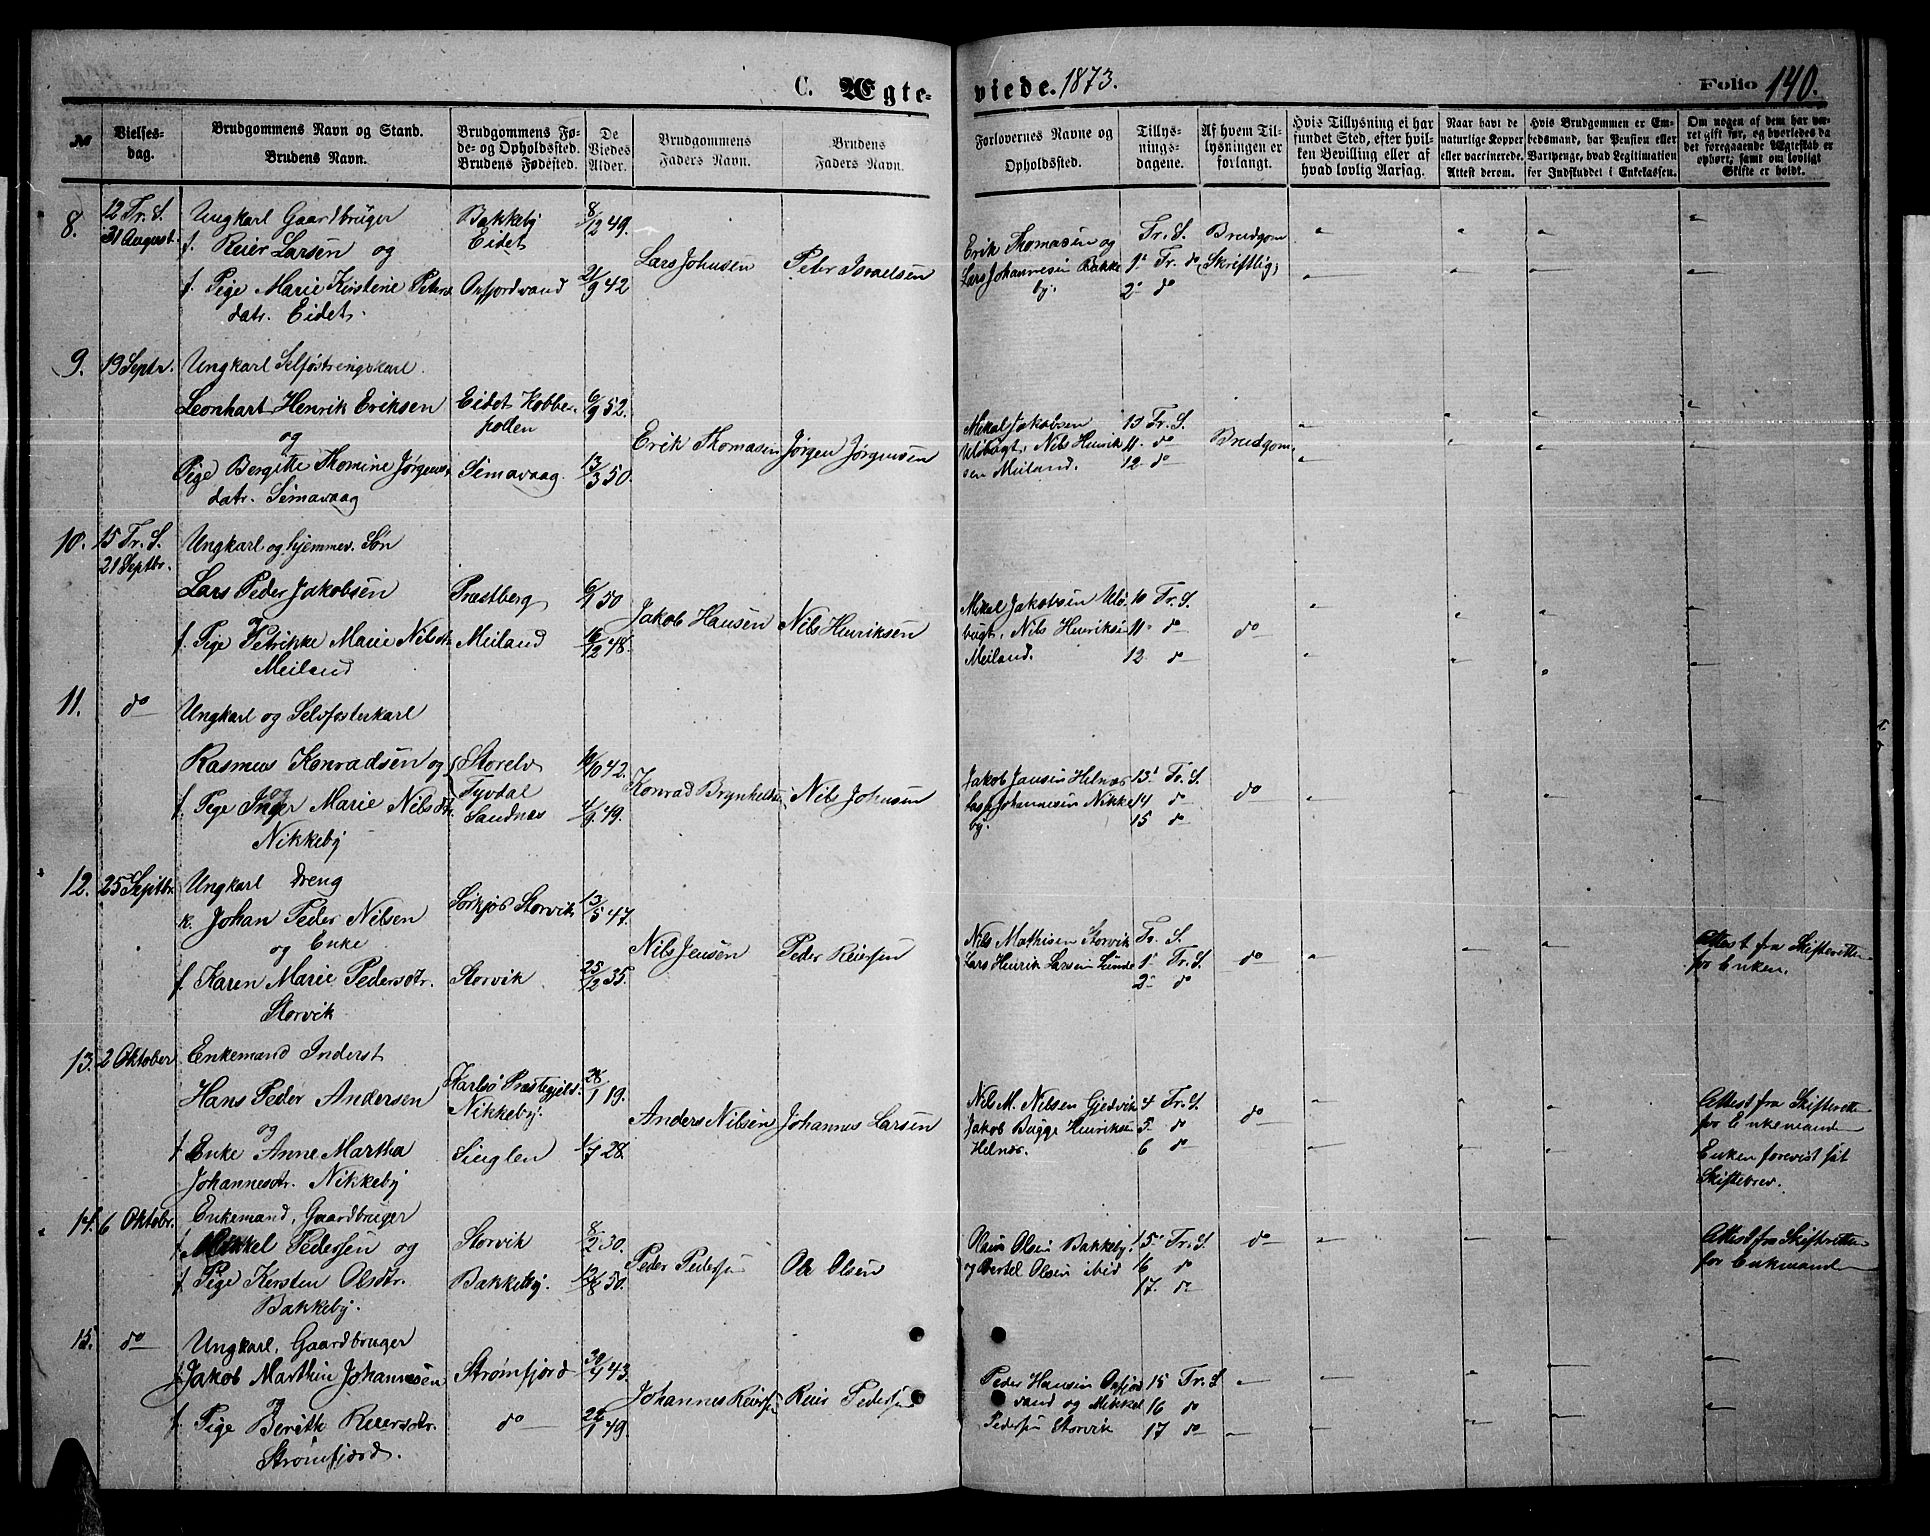 C. Ægteviede. 1873.
Folio 140.
№
Vielses-
dag.
Brudgommens Navn og Stand.
Brudens Navn.
Brudgommens Fø-
de- og Opholdssted.
Brudens Fødested.
De
Viedes
Alder.
Brudgommens
Faders Navn.
Brudens
Faders Navn.
Forlovernes Navne og
Opholdssted.
Tillys-
nings-
dagene.
Af hvem Til-
lysningen er
forlangt.
Hvis Tillysning ei har
fundet Sted, efter hvil-
ken Bevilling eller af
hvad lovlig Aarsag.
Naar havt de
naturlige Kopper
eller vaccinerede.
Attest derom.
Hvis Brudgommen er Em-
bedsmand, har Pension eller
Vartpenge, hvad Legitimation
for Indskuddet i Enkekassen.
Om nogen af dem har væ-
ret gift før, og hvorledes da
det foregaaende Ægteskab er
ophørt, samt om lovligt
Skifte er holdt.
8.
12 Tr. S.
31 August.
Ungkarl Gaardbruger
f. Reier Larsen og
f. Pige Marie Kirstine Peters
datr. Eidet.
Bakkeby
Eidet
Oxfjordvand
8/12 49.
21/9 42
Lars Johnsen
Peter Israelsen
Erik Thomasen og
Lars Johannesen Bakke
by.
Tr. S.
1' Tr. do
2- do
Brudgom
(Skriftlig)
9.
19 Septr.
Ungkarl Selføstringskarl
Leonhart Henrik Eriksen
og
Pige Bergitte Thomine Jørgens
datr. Simavaag
Eidet Kobbe-
pollen
Simavaag.
6/9 52.
13/3 50.
Erik Thomasen
Jørgen Jørgensen
Mikal Jakobsen
Uløbugt, Nils Henrik
sen Meiland.
10 Tr. S.
11- do
12- do
Brudgom
10.
15 Tr. S.
21 Septbr.
Ungkarl og hjemmev. Søn
Lars Peder Jakobsen
og
f. Pige Petrikke Marie Nilsdtr.
Meiland
Præstberg
Meiland
6/1 50
16/12 48.
Jakob Hansen
Nils Henriksen
Mikal Jakobsen Ulø
bugt, Nils Henriksen
Meiland.
10 Tr. S.
11- do
12 do
do
11.
do
Ungkarl og Selvfosterkarl
Rasmus Konradsen og
f. Pige Inger Marie Nilsdtr.
Nikkeby
Storelv
Tyvdal
Sandnæs
16/10 42.
4/9 49.
Konrad Brynkelsen
Nils Johnsen
Jakob Jansen Helnæs
Lars Johannesen Nikke
by.
13' Tr. S.
14 do
15 do
do
12.
25 Septbr.
Ungkarl Dreng
k. Johan Peder Nilsen
og Enke
f. Karen Marie Pedersdtr.
Storvik
Sørkjos Storvik
Storvik
13/5 47.
25/12 35.
Nils Jensen
Peder Reiersen
Nils Mathisen Storvik
Lars Henrik Larsen Sunde
Tr. S.
1' Tr. S.
2- do
do
Attest fra Skifteretten
for Enken.
13.
2 Oktober
Enkemand Inderst
Hans Peder Andersen
og
f. Enke Anne Martha
Johannesdtr. Nikkeby
Karlsø Præstegjeld.
Nikkeby.
Singlen
28/1 19.
1/7 28.
Anders Nilsen
Johannes Larsen
Nils M. Nilsen Gjedvik
Jakob Bugge Henriksen
Helnæs.
4 Tr. S.
5- do
6 do
do
Attest fra Skifteretten
for Enkemanden
Enken forevist sit
Skiftebrev.
14.
6 Oktobr.
Enkemand, Gaardbruger
f. Mikkel Pedersen og
f. Pige Kersten Olsdtr.
Bakkeby.
Storvik
Bakkeby.
8/2 30.
12/8 50.
Peder Pedersen
Ole Olsen
Hans Olsen Bakkeby.
og Bertel Olsen ibid
15' Tr. S.
16 do
17. do
do
Attest fra Skifteretten
for Enkemanden
15.
do
Ungkarl, Gaardbruger
f. Jakob Marthin Johannesen
og
f. Pige Berith Reiersdtr.
Strømfjord.
Strømfjord
do
30/4 43.
22/1 49.
Johannes Reiersen
Reier Pedersen
Peder Hansen Oxfjord
vand og Mikkel
Pedersen Storvik
15 Tr. S
16 do
17 do